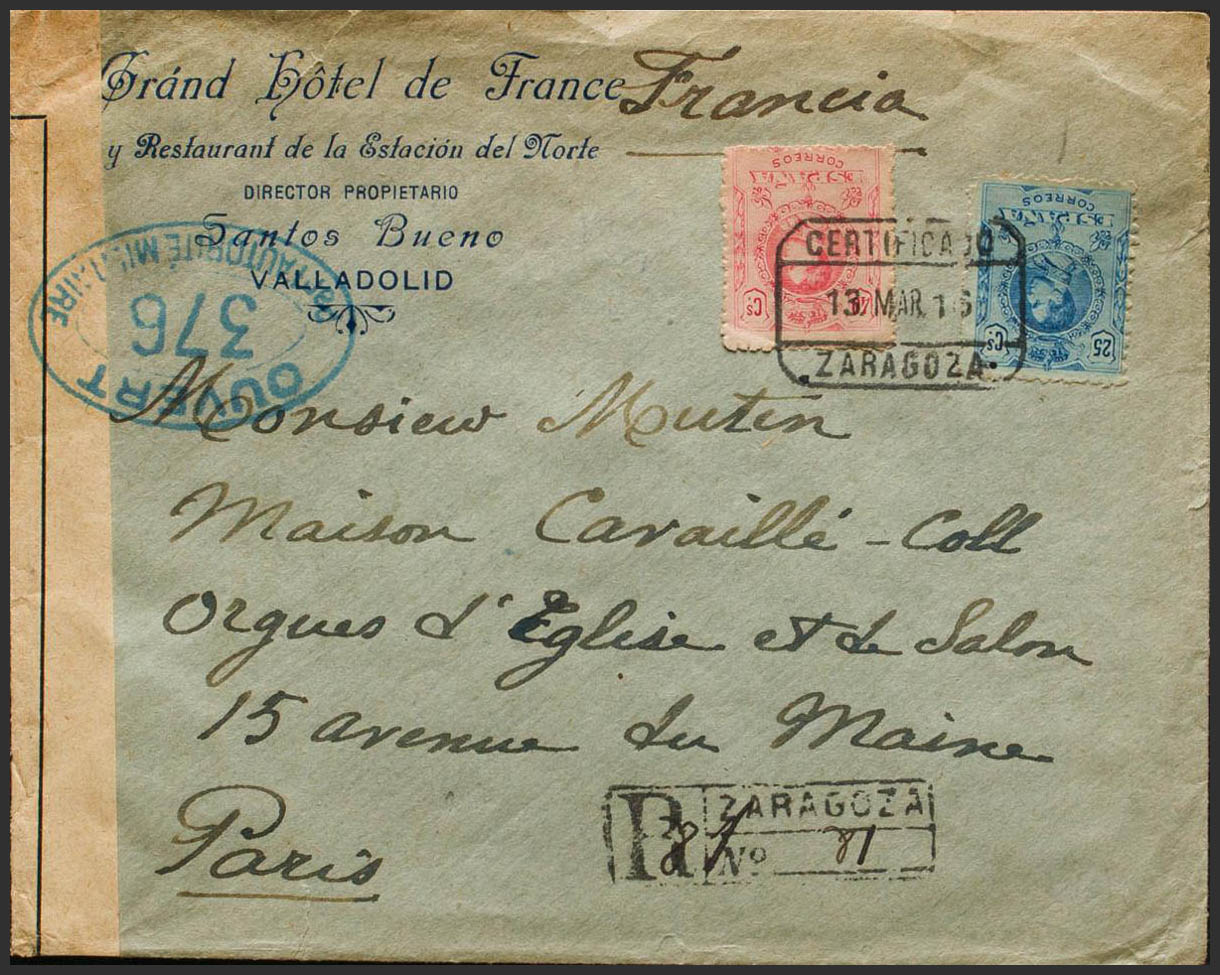 Gránd Hôtel de France
Francia
y Restaurant de la Estación del Norte
DIRECTOR PROPIETARIO
Santos Bueno
VALLADOLID
OUVERT
376
AUTORITÉ MILITAIRE
CORREOS
ESPAÑA
Cs
CORREOS
ESPAÑA
25 Cs
CERTIFICADO
13 MAR 16
ZARAGOZA
Monsieur Mutin
Maison Cavaillé-Coll
Orgues d'Eglise et de Salon
15 avenue du Maine
Paris
R ZARAGOZA
87
Nº 81